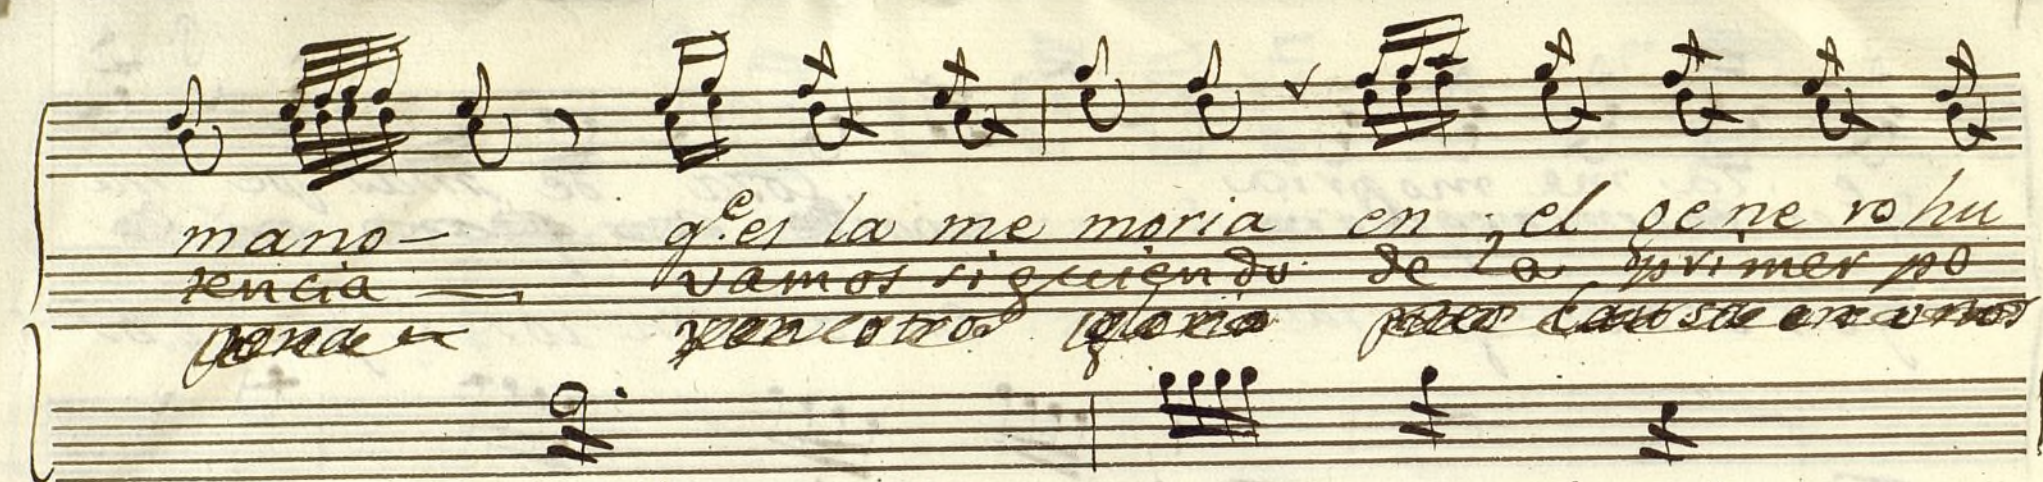 mano— q.e es la me moria en el gene ro hu
tencia — vamos siguiendo de la primer po
pende y en otros gloria pues causa en unos